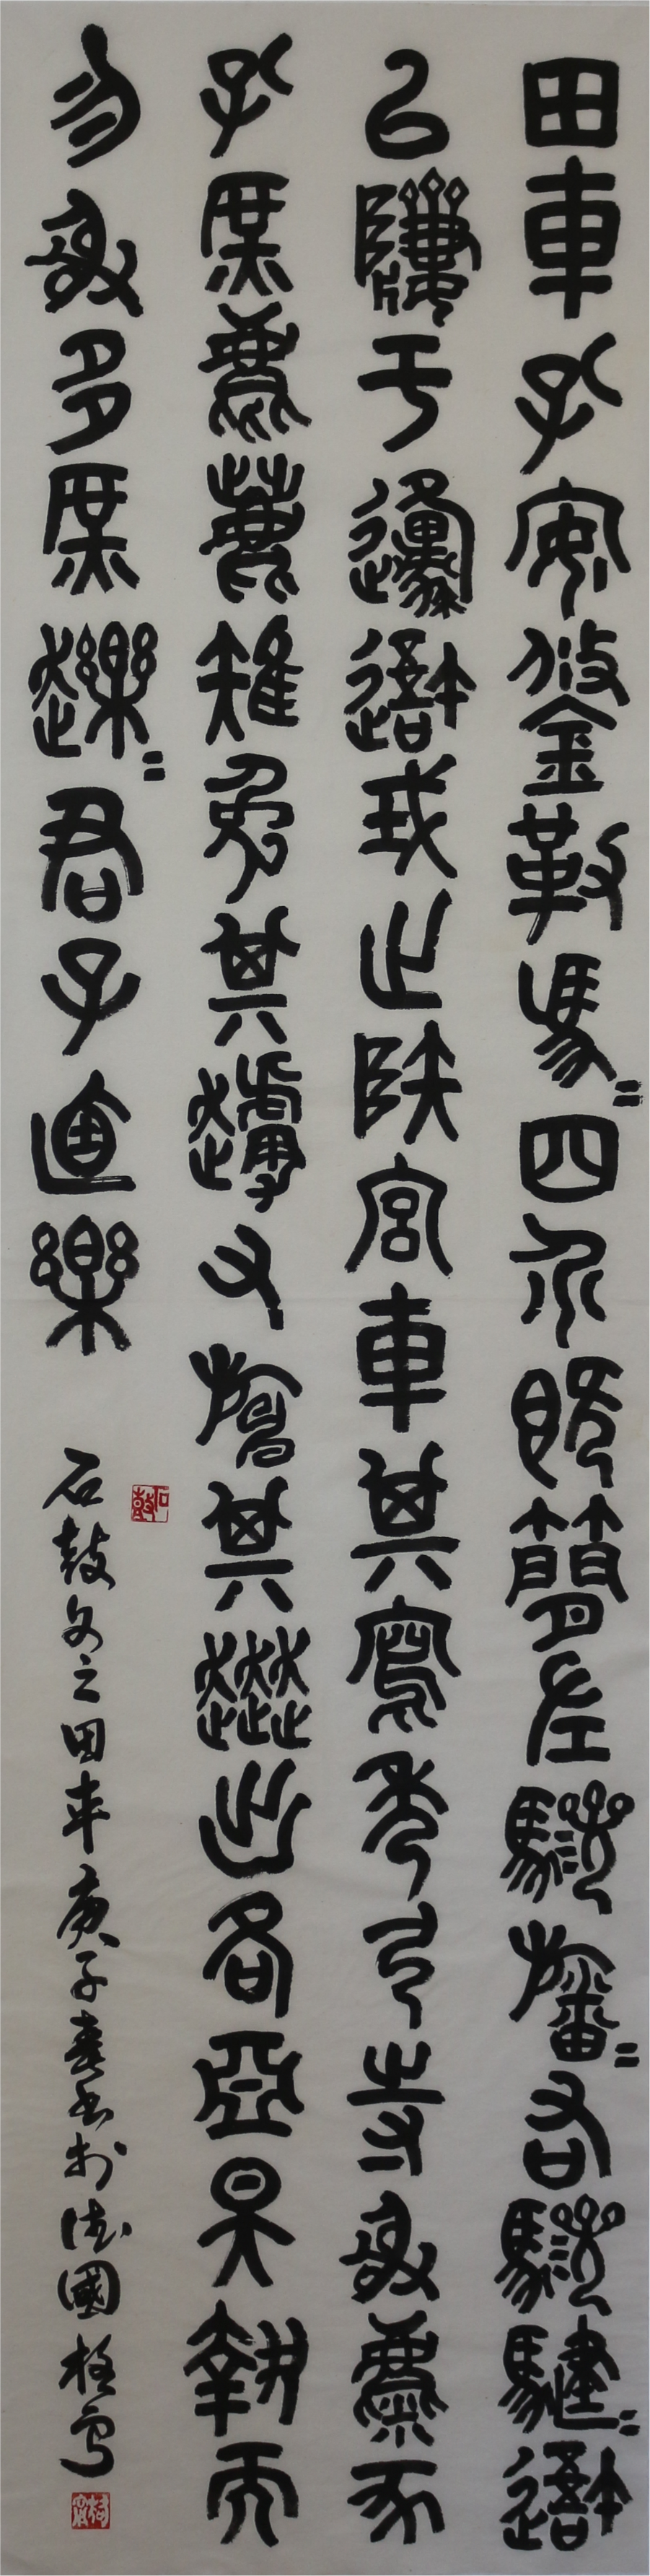 田車孔安鋚勒馬=四介既簡左驂旛=右驂騝=䢩
以隮于邍䢩戎止陜宮車其寫秀弓寺射麋豕
孔庶麀鹿雉兔其又旃其出各亞昊執而
勿射多庶䟏=君子迺樂
石鼓文之田車庚子春書於德國
石鼓